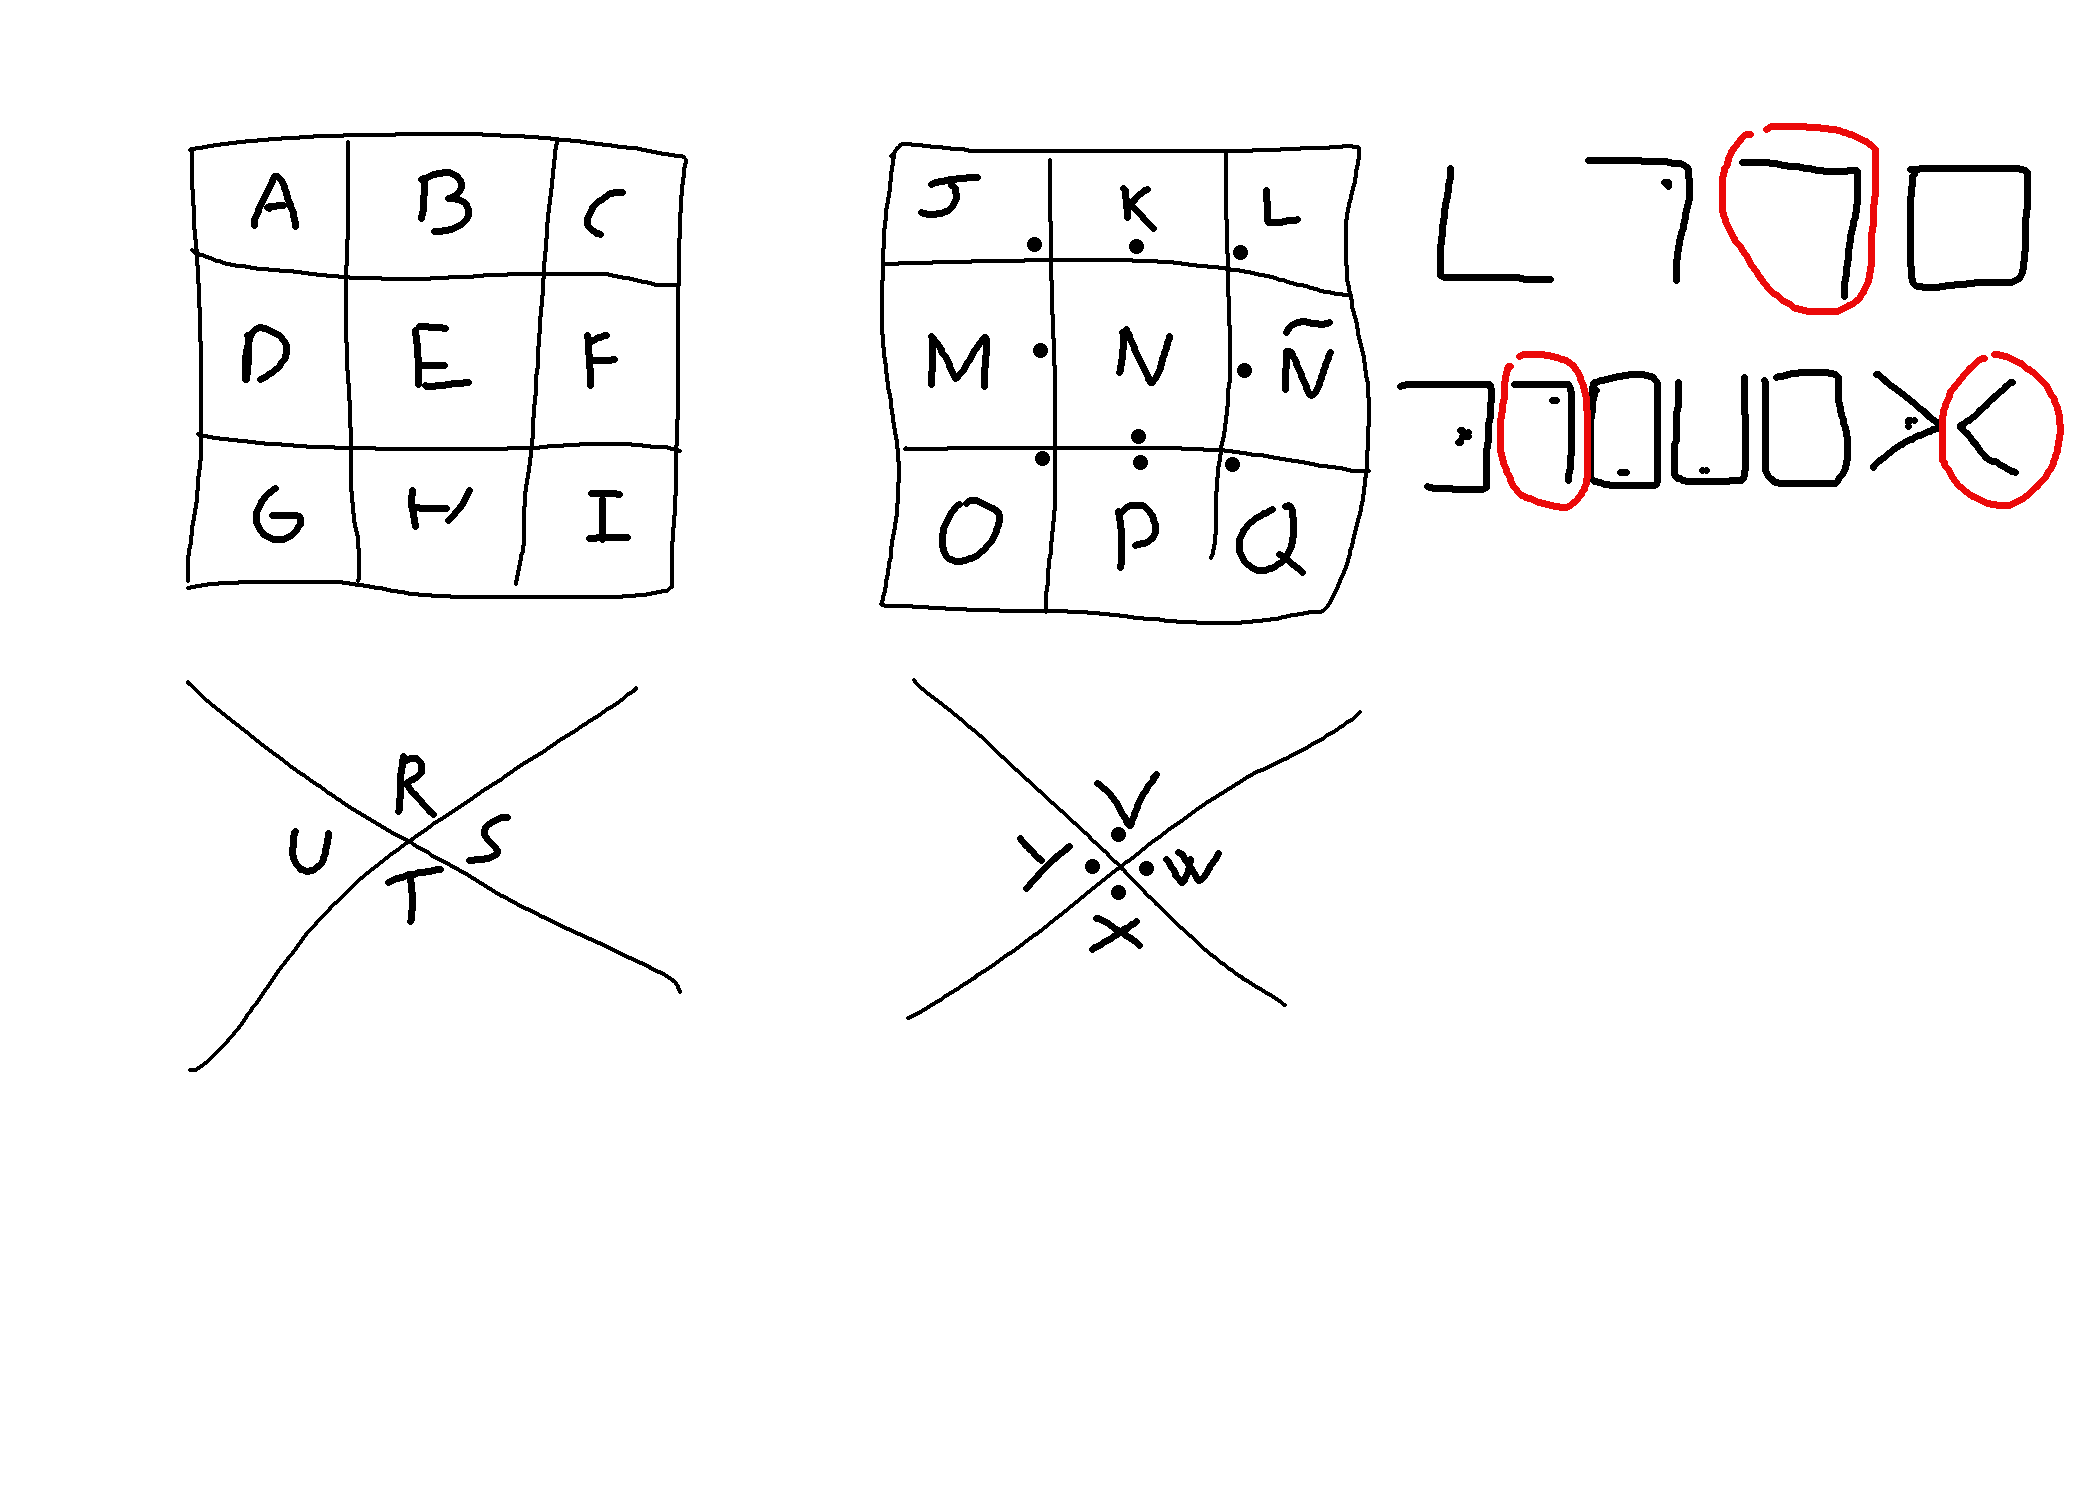 A B C
D E F
G H I
J K L
M N Ñ
O P Q
R
U S
T
V
Y W
X